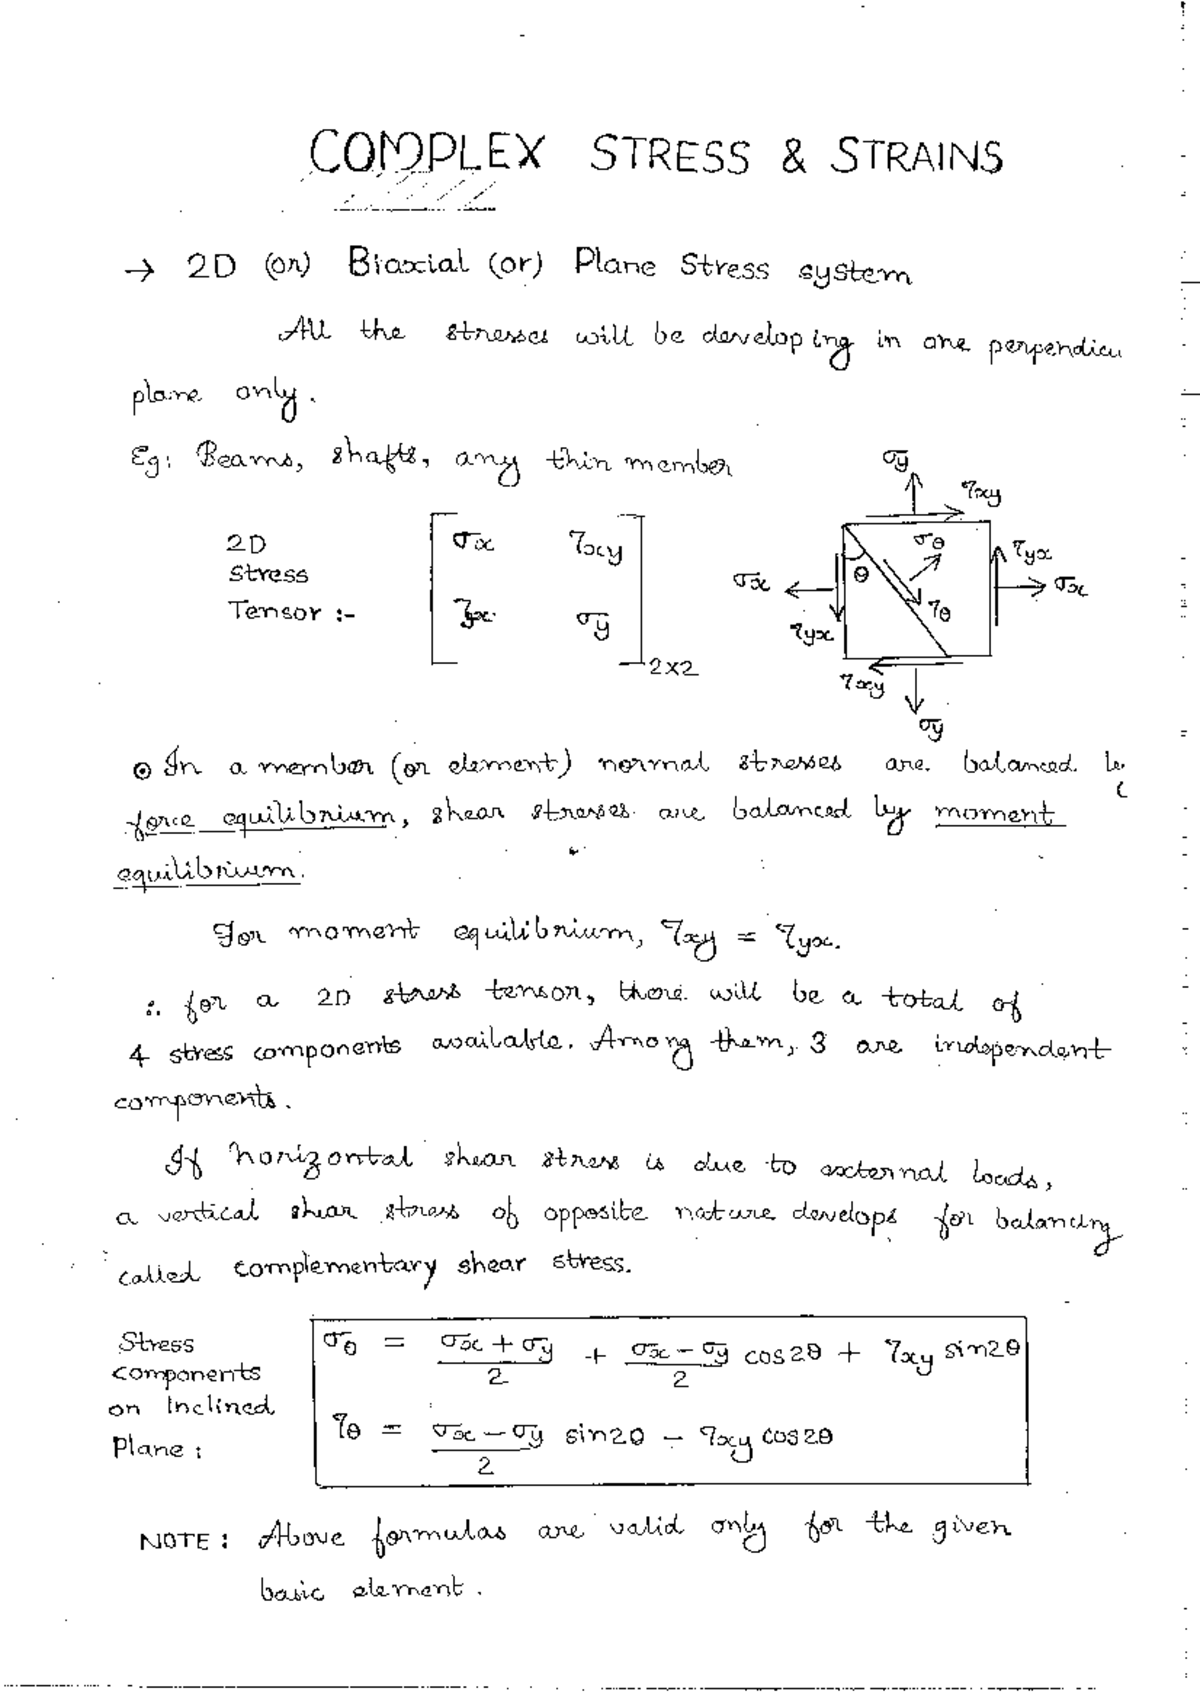 COMPLEX STRESS & STRAINS
→ 2D (or) Biaxial (or) Plane Stress system
All the stresses will be developing in one perpendicu
plane only.
Eg: Beams, shafts, any thin member
σy
τxy
2D
Stress
Tensor :-
σx τxy
τyx σy
2×2
σθ
τyx
θ
σx
σx
τθ
τyx
τxy
σy
⊙ In a member (or element) normal stresses are balanced
force equilibrium, shear stresses are balanced by moment
equilibrium.
For moment equilibrium, τxy = τyx.
∴ for a 2D stress tensor, there will be a total of
4 stress components available. Among them, 3 are independent
components.
If horizontal shear stress is due to external loads,
a vertical shear stress of opposite nature develops for balancing
called complementary shear stress.
Stress
components
on Inclined
Plane :
σθ = σx + σy / 2 + σx − σy / 2 cos2θ + τxy sin2θ
τθ = σx − σy / 2 sin2θ − τxy cos2θ
NOTE : Above formulas are valid only for the given
basic element.